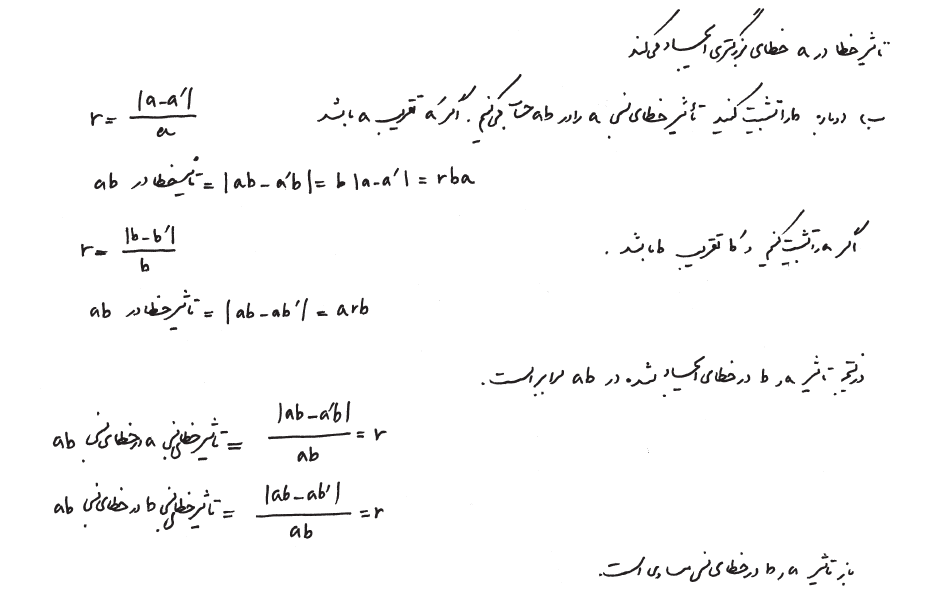 تاثیر خطا در a خطای بزرگتری ایجاد می‌کند
ب) دوباره b را تثبیت کنید تأثیر خطای نسبی a را در ab حساب می‌کنیم. اگر a′ تقریب a باشد
r = |a-a′| / a
تأثیر خطا در ab = |ab - a′b| = b |a-a′| = rba
اگر a را تثبیت کنیم و b′ تقریب b باشد.
r = |b-b′| / b
تأثیر خطا در ab = |ab - ab′| = arb
در نتیجه تاثیر a و b در خطای ایجاد شده در ab برابر است.
تأثیر خطای نسبی a در خطای نسبی ab = |ab - a′b| / ab = r
تأثیر خطای نسبی b در خطای نسبی ab = |ab - ab′| / ab = r
باز تاثیر a و b در خطای نسبی مساوی است.